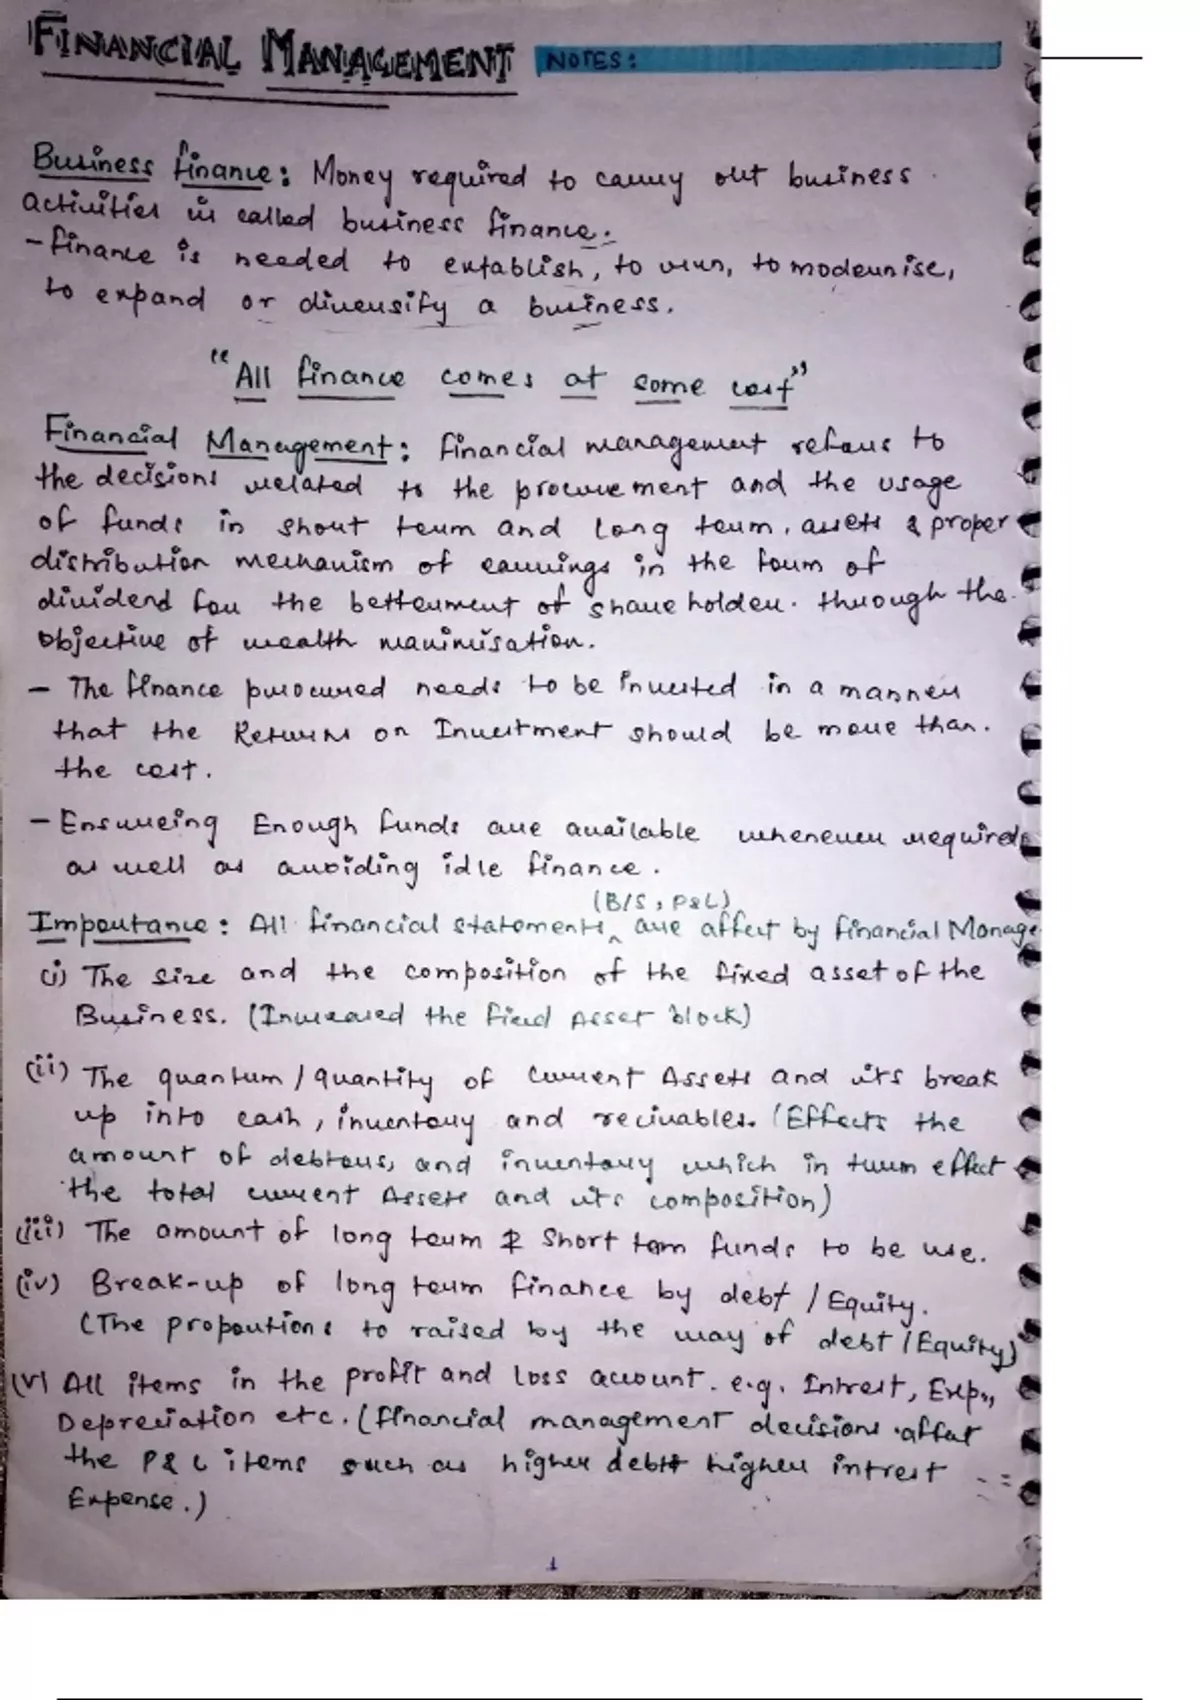 FINANCIAL MANAGEMENT NOTES:
Business finance: Money required to carry out business
activities is called business finance.
- finance is needed to establish, to run, to modernise,
to expand or diversify a business.
"All finance comes at some cost"
Financial Management: financial management refers to
the decisions related to the procurement and the usage
of funds in short term and long term. assets & proper
distribution mechanism of earnings in the form of
dividend for the betterment of shareholder. through the
objective of wealth maximisation.
- The finance procured needs to be invested in a manner
that the Returns on Investment should be more than.
the cost.
- Ensureing Enough funds are available whenever required
as well as avoiding idle finance.
(B/S, P&L)
Importance: All financial statements ^ are affect by financial Manage
(i) The size and the composition of the fixed asset of the
Business. (Increased the fixed Asset block)
(ii) The quantum / quantity of Current Assets and its break
up into cash, inventory and recivables. (Effects the
amount of debtors, and inventory which in turn effect
the total current Assets and its composition)
(iii) The amount of long term & Short term funds to be use.
(iv) Break-up of long term finance by debt / Equity.
(The proportions to raised by the way of debt / Equity)
(v) All items in the profit and loss account. e.g. Intrest, Exp.,
Depreciation etc. (financial management decisions affect
the P & L items such as higher debt higher intrest
Expense.)
1